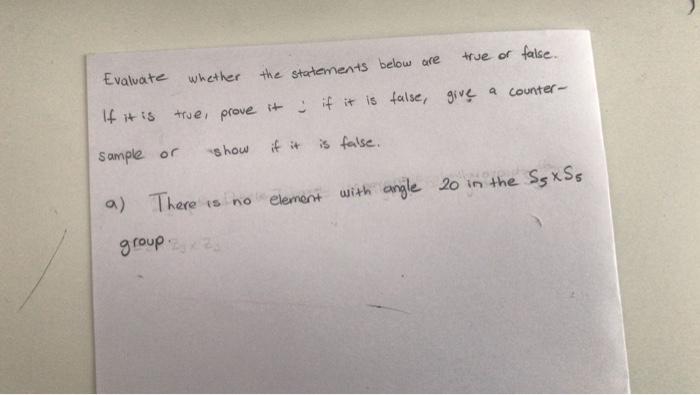 Evaluate whether the statements below are true or false.
If it is true, prove it ; if it is false, give a counter-
sample or show if it is false.
a) There is no element with angle 20 in the S5xS5
group.